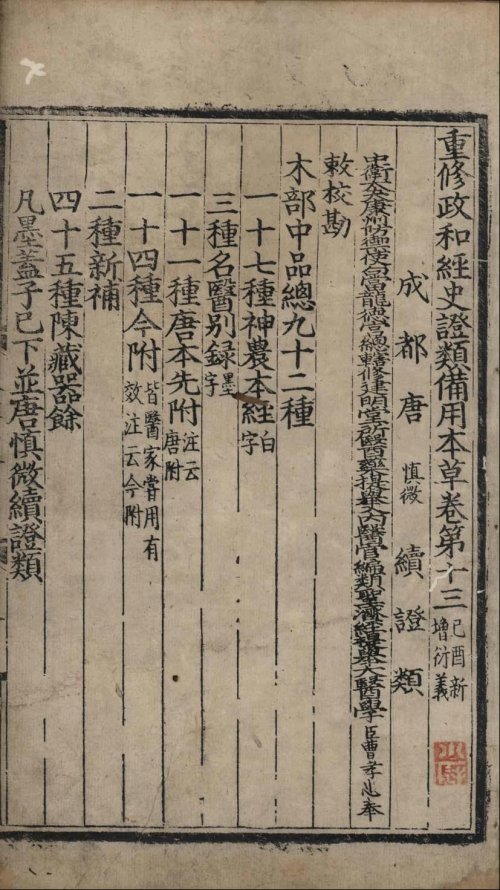 重修政和經史證類備用本草卷第十三 己酉新增衍義
成都唐 慎微 續證類
中衛大夫康州防禦使句當龍德宮總轄修建明堂所醫藥提舉入內醫官編類聖濟經提舉大醫學臣曹孝忠奉
敕校勘
木部中品總九十二種
一十七種神農本經白字
三種名醫別録墨字
一十一種唐本先附注云唐附
一十四種今附皆醫家嘗用有效注云今附
二種新補
四十五種陳藏器餘
凡墨蓋子已下並唐慎微續證類